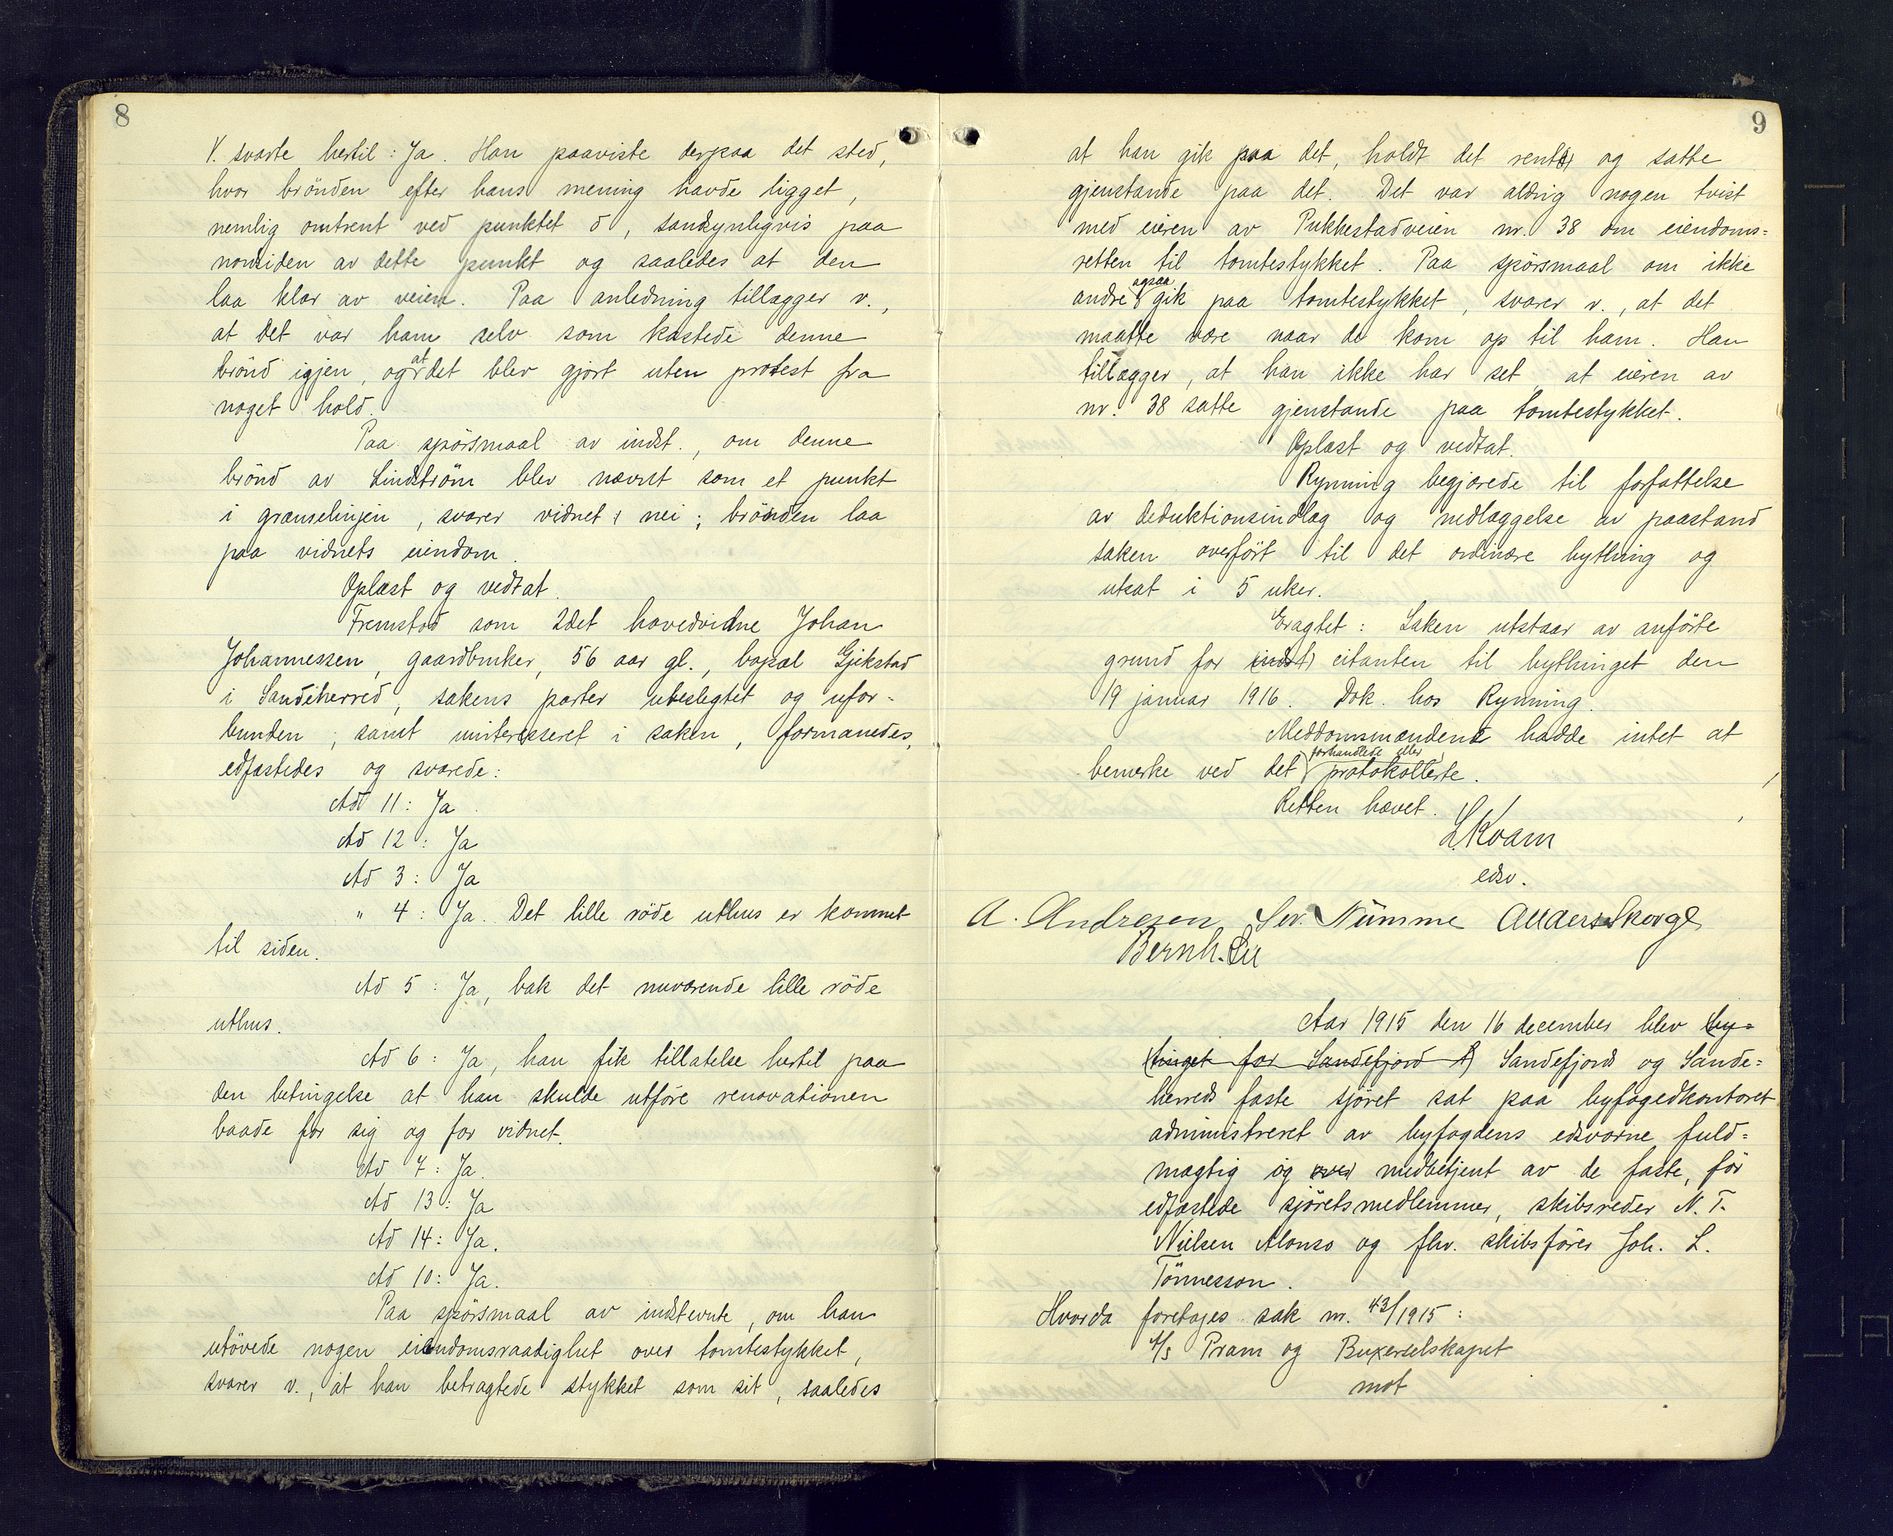 8
V. svarte hertil: Ja. Han paaviste derpaa det sted,
hvor brönden efter hans mening havde ligget,
nemlig omtrent ved punktet d, sandsynligvis paa
nordsiden av dette punkt og saaledes at den
laa klar av veien. Paa anledning tillægger v.,
at det var ham selv som kastede denne
brönd igjen, og at det blev gjort uten protest fra
noget hold.
Paa spörsmaal av indst., om denne
brönd av Lindström blev nævnt som et punkt
i grænselinjen, svarer vidnet: nei; brönden laa
paa vidnets eiendom.
Oplæst og vedtat.
Fremstod som 2det hovedvidne Johan
Johannessen, gaardbruker, 56 aar gl., bopæl Gjekstad
i Sandeherred, sakens parter ubeslegtet og ufor-
bunden, samt uinteresseret i saken, formanedes,
edfæstedes og svarede:
Ad 11: Ja.
Ad 12: Ja
Ad 3: Ja
" 4: Ja. Det lille röde uthus er kommet
til siden.
Ad 5: Ja, bak det nuværende lille röde
uthus.
Ad 6: Ja, han fik tillatelse hertil paa
den betingelse at han skulde utföre renovationen
baade for sig og for vidnet.
Ad 7: Ja.
Ad 13: Ja
Ad 14: Ja.
Ad 10: Ja.
Paa spörsmaal av indstevnte, om han
utövede nogen eiendomsraadighet over tomtestykket,
svarer v., at han betragtede stykket som sit, saaledes
9
at han gik paa det, holdt det rent og satte
gjenstande paa det. Det var aldrig nogen tvist
med eieren av Pukkestadveien nr. 38 om eiendoms=
retten til tomtestykket. Paa spörsmaal om ikke
andre ogsaa gik paa tomtestykket, svarer v., at det
maatte være naar de kom op til ham. Han
tillægger, at han ikke har set at eieren av
nr. 38 satte gjenstande paa tomtestykket.
Oplæst og vedtat.
Rynning begjærede til forfattelse
av deduktionsindlæg og nedlæggelse av paastand
saken overfört til det ordinære bything og
utsat i 5 uker.
Eragtet: Saken utstaar av anförte
grund for (indst) citanten til bythinget den
19 januar 1916. Dok. hos Rynning.
Meddomsmændene hadde intet at
bemerke ved det forhandlede eller protokollerte.
Retten hævet.
L. Kvam
edsv.
A. Andresen Sev. Nümme Anders Skorge
Bernh. Lie
Aar 1915 den 16 december blev by=
tinget for Sandefjord Sandefjords og Sande=
herreds faste sjöret sat paa byfogedkontoret
administreret av byfogdens edsvorne fuld=
mægtig og med medbetjent av de faste, för
edfæstede sjöretsmedlemmer, skibsreder N. T.
Nielsen Alonso og fhv. skibsförer Joh. L.
Tönnesson.
Hvorda foretoges sak nr. 43/1915:
A/S Pram og Buxerselskapet
mot